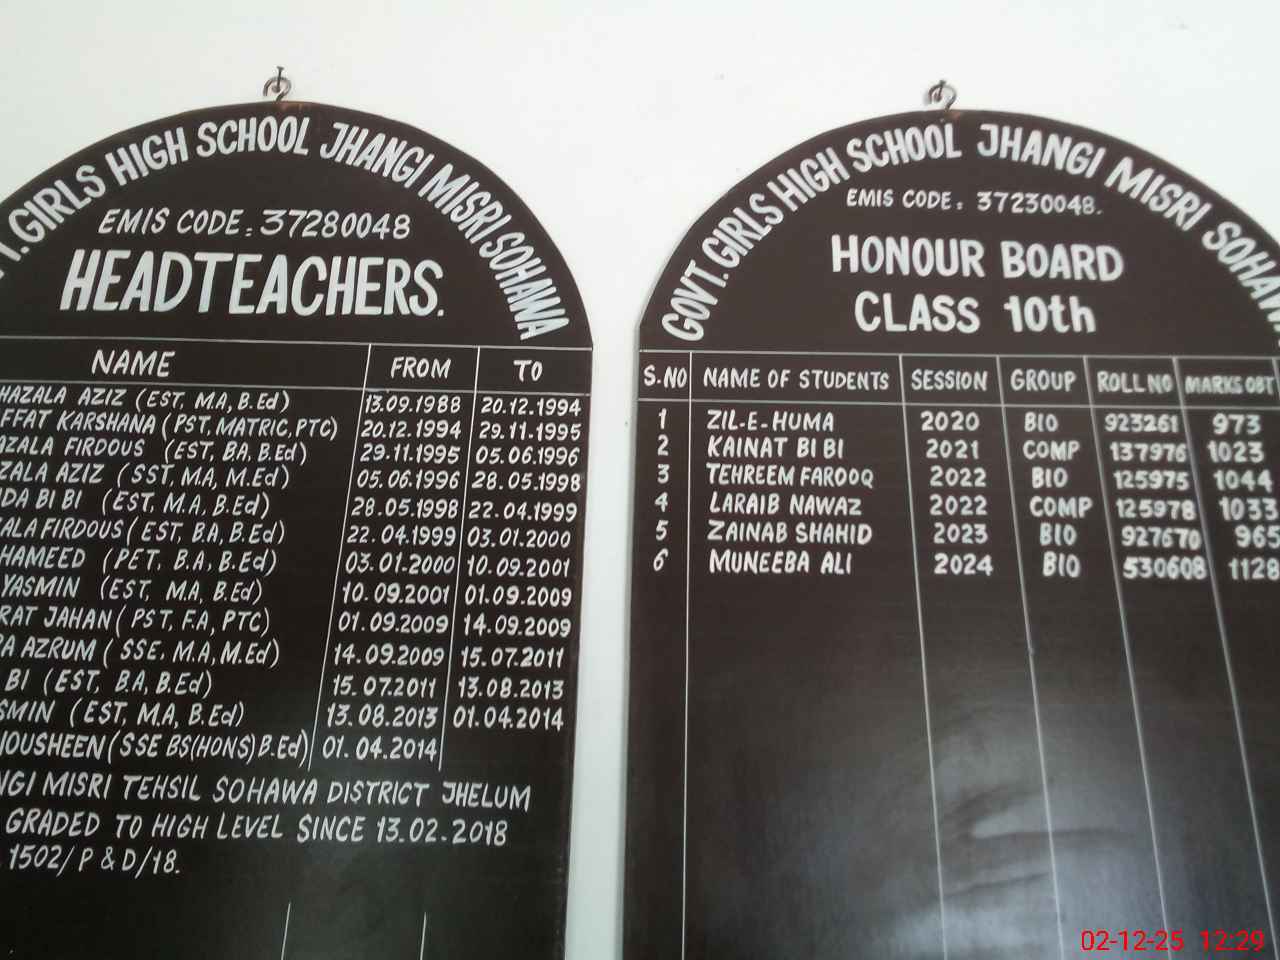 GOVT. GIRLS HIGH SCHOOL JHANGI MISRI SOHAWA
EMIS CODE: 37280048
HEADTEACHERS.
NAME FROM TO
HAZALA AZIZ (EST, MA, B.Ed) 13.09.1988 20.12.1994
FFAT KARSHANA (PST, MATRIC, PTC) 20.12.1994 29.11.1995
AZALA FIRDOUS (EST, BA, B.Ed) 29.11.1995 05.06.1996
ZALA AZIZ (SST, M.A, M.Ed) 05.06.1996 28.05.1998
IDA BI BI (EST, M.A, B.Ed) 28.05.1998 22.04.1999
ALA FIRDOUS (EST, B.A, B.Ed) 22.04.1999 03.01.2000
HAMEED (PET, B.A, B.Ed) 03.01.2000 10.09.2001
YASMIN (EST, M.A, B.Ed) 10.09.2001 01.09.2009
RAT JAHAN (PST, F.A, PTC) 01.09.2009 14.09.2009
RA AZRUM (SSE, M.A, M.Ed) 14.09.2009 15.07.2011
BI (EST, B.A, B.Ed) 15.07.2011 13.08.2013
SMIN (EST, M.A, B.Ed) 13.08.2013 01.04.2014
OUSHEEN (SSE BS(HONS) B.Ed) 01.04.2014
NGI MISRI TEHSIL SOHAWA DISTRICT JHELUM
GRADED TO HIGH LEVEL SINCE 13.02.2018
1502/P & D/18.
GOVT. GIRLS HIGH SCHOOL JHANGI MISRI SOHAWA
EMIS CODE: 37230048.
HONOUR BOARD
CLASS 10th
S.NO NAME OF STUDENTS SESSION GROUP ROLL NO MARKS OBT
1 ZIL-E-HUMA 2020 BIO 923261 973
2 KAINAT BI BI 2021 COMP 137976 1023
3 TEHREEM FAROOQ 2022 BIO 125975 1044
4 LARAIB NAWAZ 2022 COMP 125978 1033
5 ZAINAB SHAHID 2023 BIO 927670 965
6 MUNEEBA ALI 2024 BIO 530608 1128
02-12-25 12:29